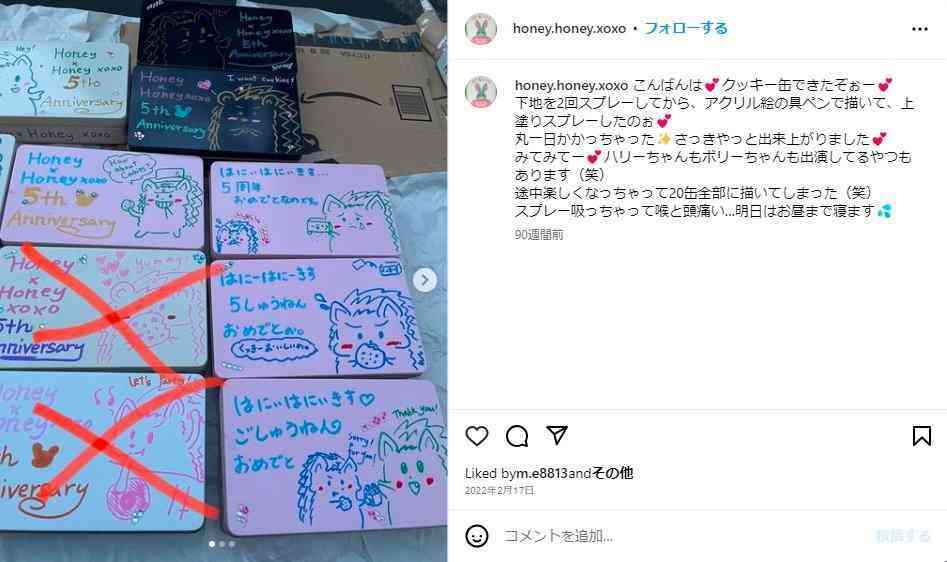 Hey!
Honey
×
Honey xoxo
5th
Anniversary
Honey
×
Honey xoxo
5th
Anniversary
Honey
×
Honey xoxo
5th
Anniversary
I want cookies!
Honey
×
Honey xoxo
5th
Anniversary
How about Cookies?
はにぃはにぃきす…
5周年
おめでとなのでぃ。
Honey
×
Honey
xoxo
5th
Anniversary
yummy!
はにーはにーきす
5しゅうねん
おめでとの。
くっきーおいしいの。
Honey
×
Honey xoxo
5th
Anniversary
Let's Party!
はにぃはにぃきす♡
ごしゅうねん
おめでと
Sorry! For you!
Thank you!
honey.honey.xoxo • フォローする
honey.honey.xoxo こんばんは💕クッキー缶できたぞぉー💕
下地を2回スプレーしてから、アクリル絵の具ペンで描いて、上
塗りスプレーしたのぉ💕
丸一日かかっちゃった✨さっきやっと出来上がりました💕
みてみてー💕ハリーちゃんもポリーちゃんも出演してるやつも
あります（笑）
途中楽しくなっちゃって20缶全部に描いてしまった（笑）
スプレー吸っちゃって喉と頭痛い...明日はお昼まで寝ます💦
90週間前
Liked bym.e8813andその他
2022年2月17日
コメントを追加...
投稿する